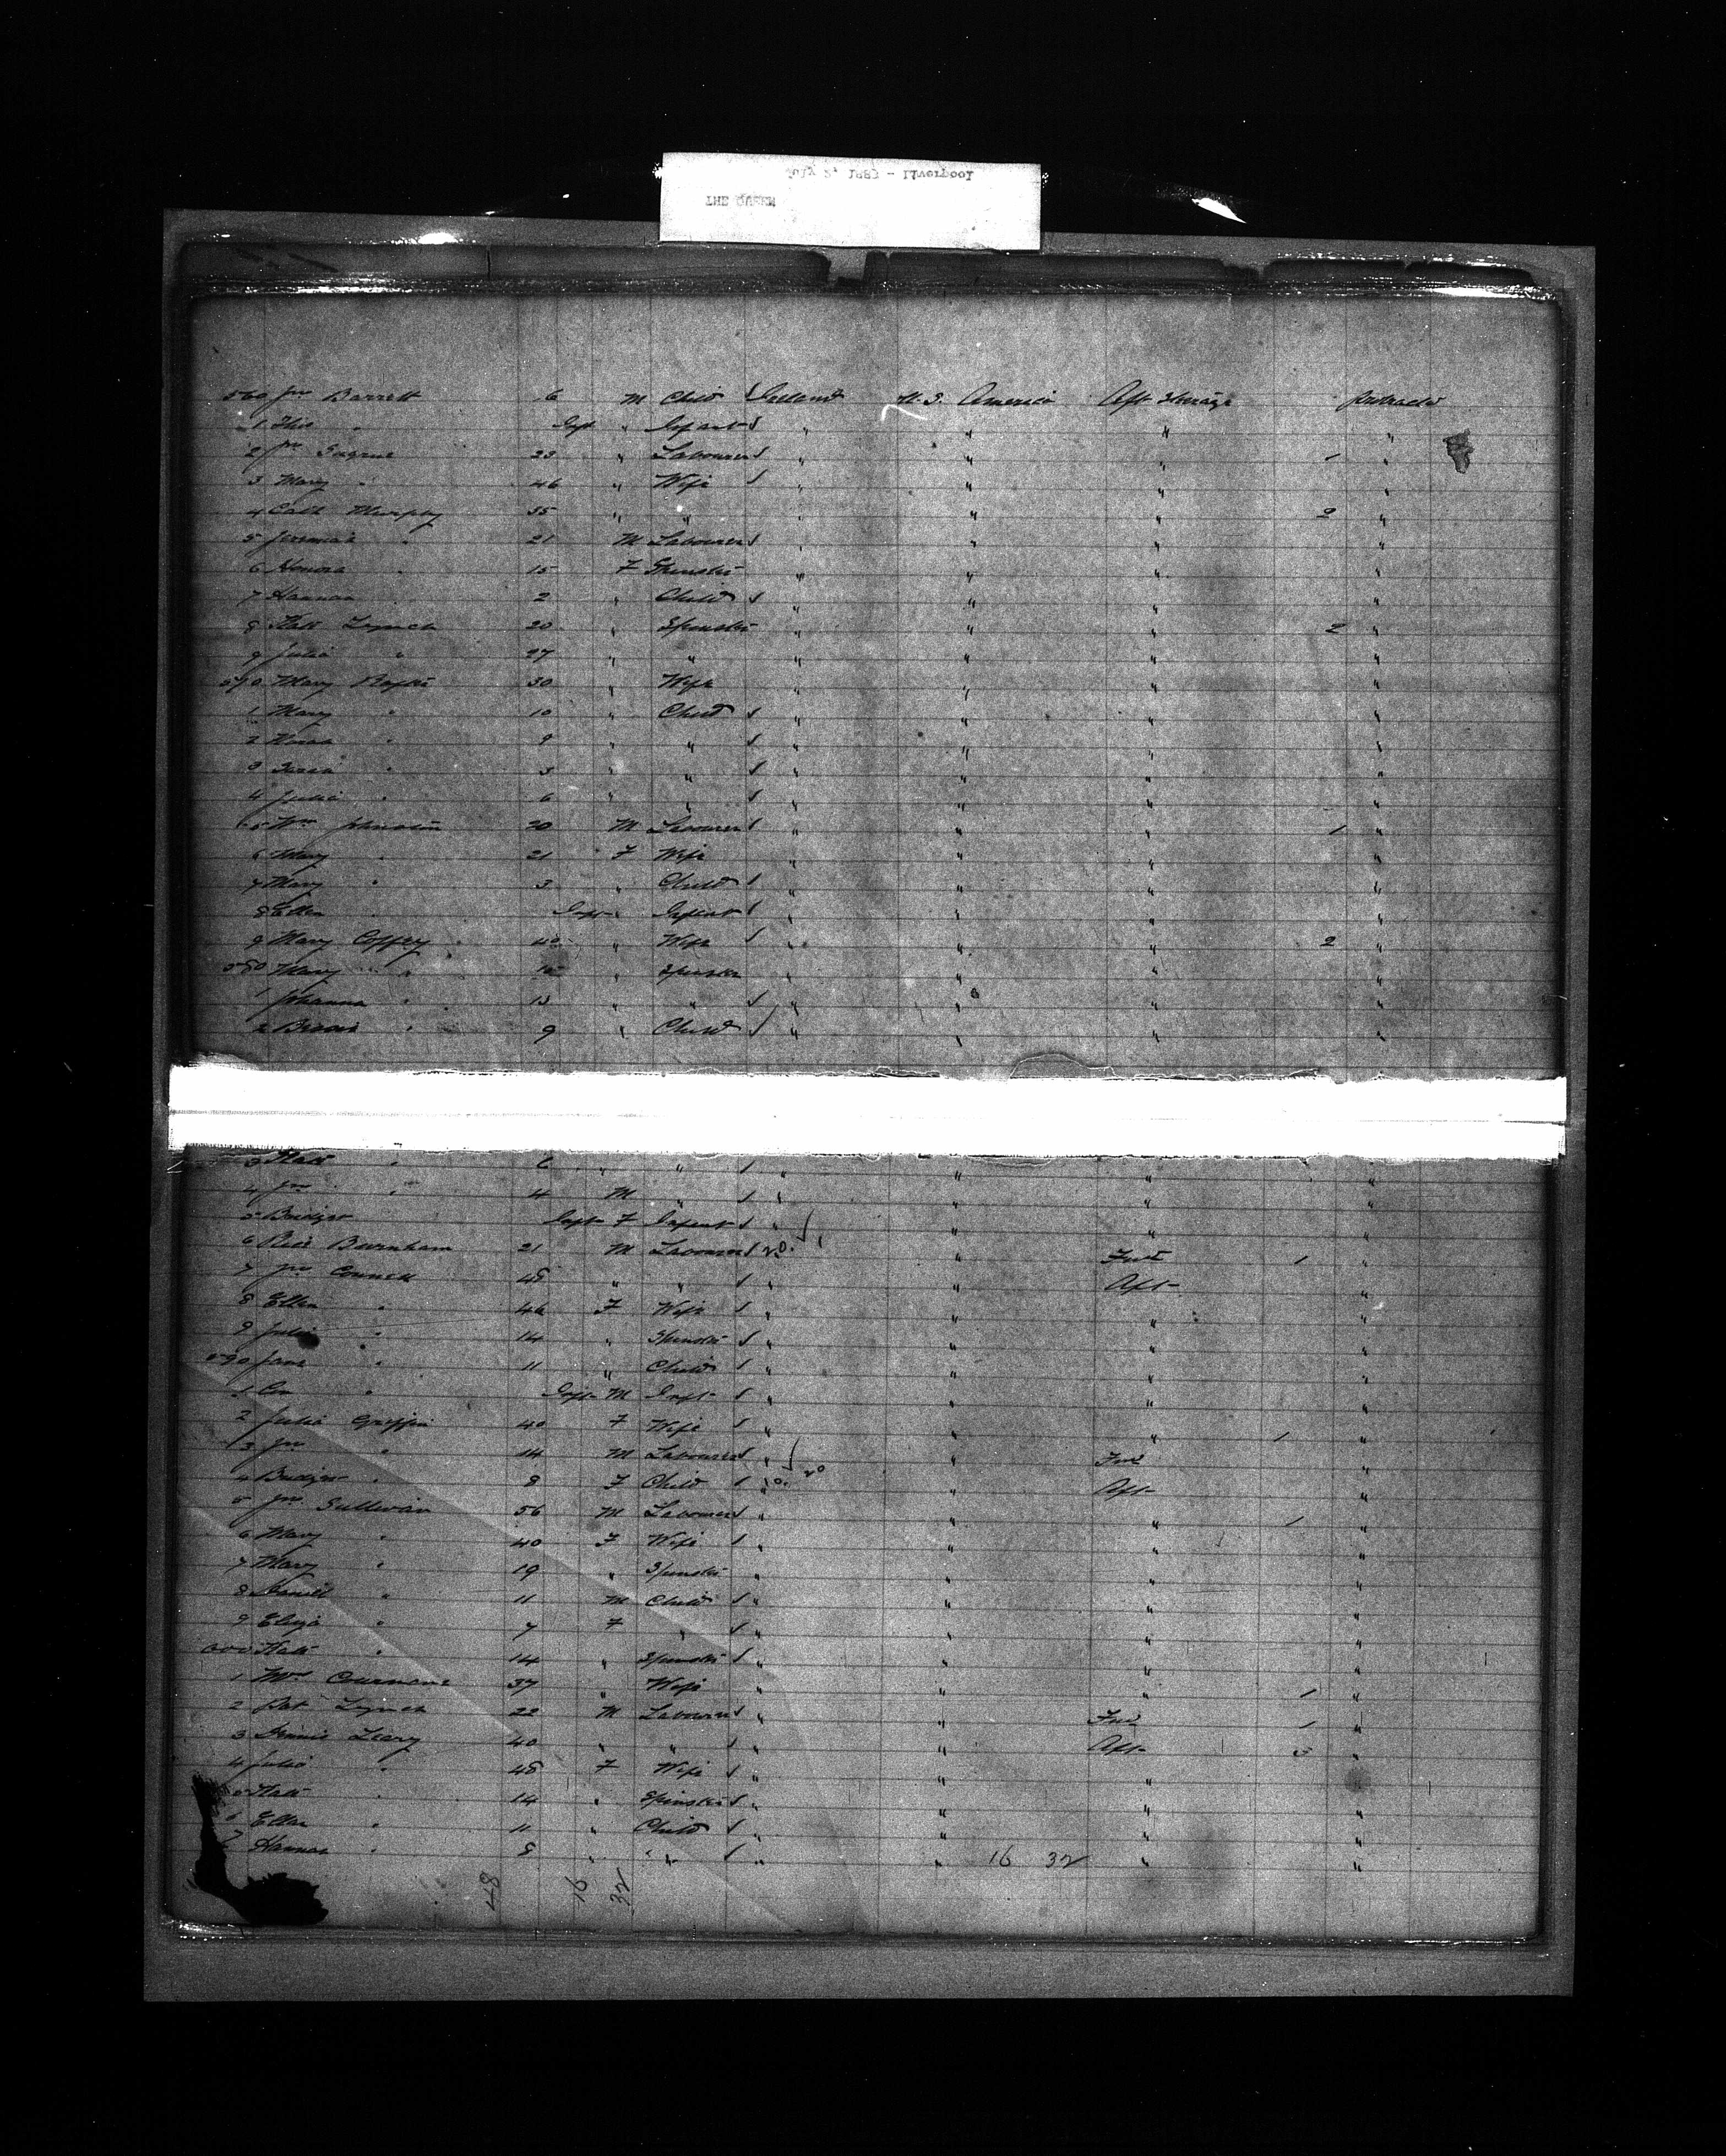 July 2, 1883 - Liverpool
THE QUEEN
560 Jno Barrett 6 M Child Ireland U.S. America Aft Steerage protracted
1 Thos " Inft " Infant " " " "
2 Jno 23 " Labourer " " " 1 "
3 Mary " 46 " Wife " " " "
4 Cath Murphy 35 " " " " " 2 "
5 Jeremia " 21 M Labourer " " " "
6 Honora " 15 F Spinster " " " "
7 Hannah 2 " Child " " " "
8 Kate Lynch 20 " Spinster " " " 2 "
9 Julia " 27 " " " " " "
570 Mary 30 " Wife " " " "
1 Mary " 10 " Child " " " "
2 " 9 " " " " " "
3 " 3 " " " " " "
4 Julia " 6 " " " " " "
5 Wm Johnston 20 M Labourer " " " 1 "
6 Mary " 21 F Wife " " " "
7 Mary " 3 " Child " " " "
8 Ellen Inft " Infant " " " "
9 Mary Coffey 40 " Wife " " " 2 "
580 Mary " " Spinster " " " "
1 Johanna " 13 " " " " " "
2 " 9 " Child " " " "
3 Kate " 6 " " " " " "
4 Jno " 4 M " " " " "
5 Bridget Inft F Infant " " " "
6 Burnham 21 M Labourer " Fwd 1 "
7 Jno Connell 48 " " " " Aft "
8 Ellen " 46 F Wife " " " "
9 Julia " 14 " Spinster " " " "
590 Jane " 11 " Child " " " "
1 Con " Inft M Inft " " " "
2 Julia Griffin 40 F Wife " " " 1 "
3 Jno " 14 M Labourer " " Fwd "
4 Bridget " 8 F Child " " Aft "
5 Jno Sullivan 56 M Labourer " " " 1 "
6 Mary " 40 F Wife " " " "
7 Mary " 19 " Spinster " " " "
8 Daniel " 11 M Child " " " "
9 Eliza " 7 F " " " " "
600 Kate " 14 " Spinster " " " "
1 Mrs Cournane 37 " Wife " " " 1 "
2 Pat Lynch 22 M Labourer " " Fwd 1 "
3 Dennis Leary 40 " " " " Aft "
4 Julia " 48 F Wife " " " "
5 Kate " 14 " Spinster " " " "
6 Ellen " 11 " Child " " " "
7 Hannah " 8 " " " " 16 32 " "
48 16 32